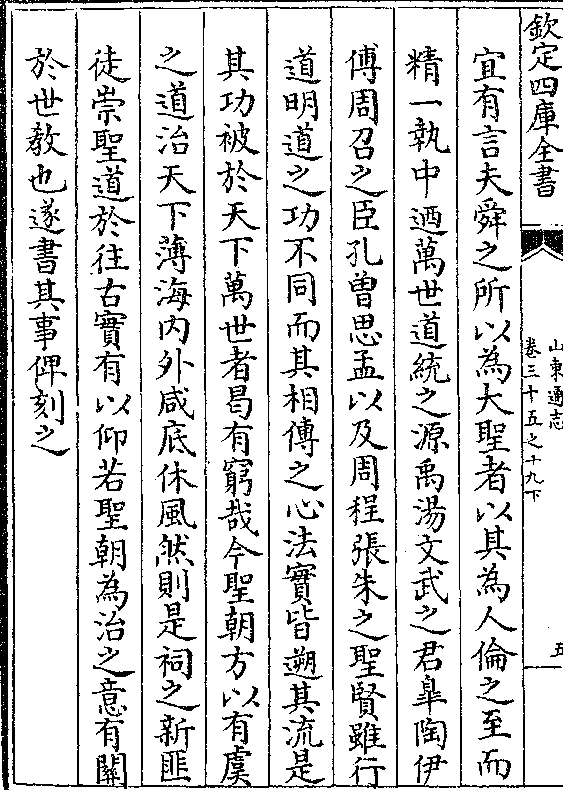 欽定四庫全書
山東通志
卷三十五之十九下
五
宜有言夫舜之所以為大聖者以其為人倫之至而
精一執中迺萬世道統之源禹湯文武之君臯陶伊
傅周召之臣孔曾思孟以及周程張朱之聖賢雖行
道明道之功不同而其相傳之心法實皆遡其流是
其功被於天下萬世者曷有窮哉今聖朝方以有虞
之道治天下薄海内外咸底休風然則是祠之新匪
徒崇聖道於往古實有以仰若聖朝為治之意有關
於世教也遂書其事俾刻之